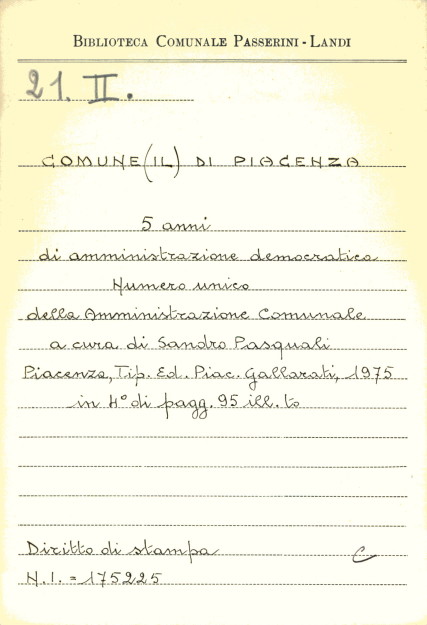 BIBLIOTECA COMUNALE PASSERINI - LANDI
21. II.
COMUNE (IL) DI PIACENZA
5 anni
di amministrazione democratica
Numero unico
della Amministrazione Comunale
a cura di Sandro Pasquali
Piacenza, Tip. Ed. Piac. Gallarati, 1975
in 4° di pagg. 95 ill. to
Diritto di stampa C
N.I. = 175225